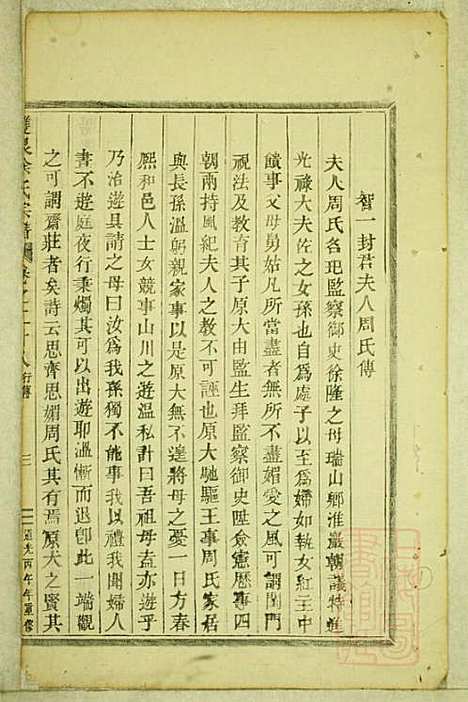 智一封君夫人周氏傳
夫人周氏名玘監察御史徐隆之母瑞山鄉淮巖朝議特進
光祿大夫佐之女孫也自爲處子以至爲婦如執女紅主中
饋事父母舅姑凡所當盡者無不盡媚愛之風可謂閨門
視法及教育其子原大由監生拜監察御史陞僉憲歷事四
朝兩持風紀夫人之教不可誣也原大馳驅王事周氏家居
與長孫溫躬親家事以是原大無不遑將母之憂一日方春
熈和邑人士女競事山川之遊溫私計曰吾祖母盍亦遊乎
乃治遊具請之母曰汝爲我孫獨不能事我以禮我聞婦人
晝不遊庭夜行秉燭其可以出遊耶溫慚而退卽此一端觀
之可謂齋莊者矣詩云思齊思媚周氏其有焉原大之賢其
雙泉徐氏宗譜 卷之二十八 行傳 三 道光丙午年重修